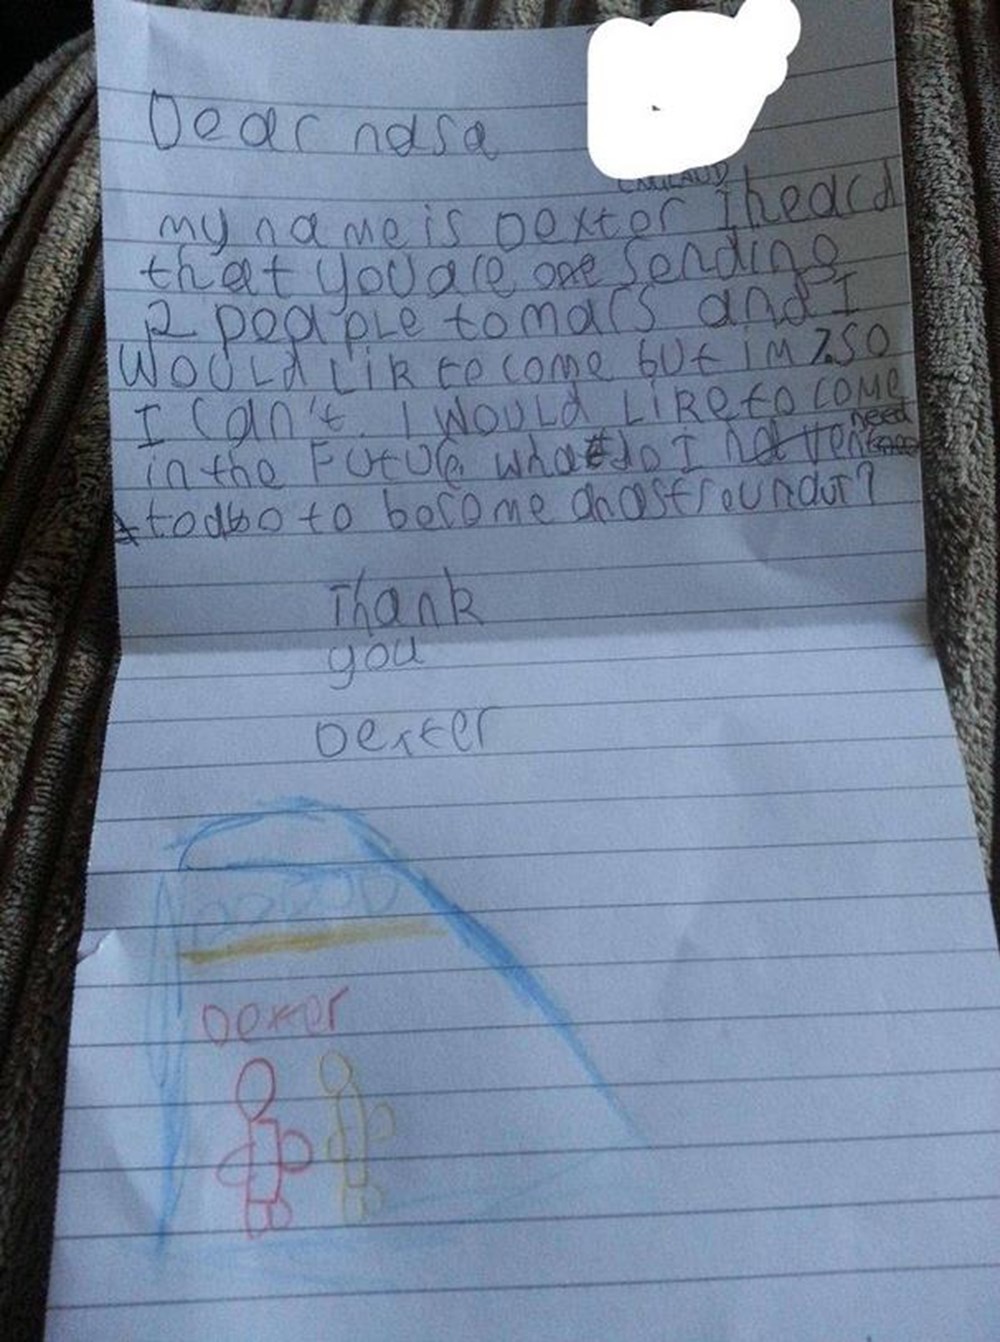 Dear nasa
ENGLAND
my name is Dexter I heard
that you are one sending
2 peaple to mars and I
WOULd Lik to come but im 7 so
I can't. I WOULd LiRe to come
in the Future what do I haven need
to do to become an astrounaut?
Thank
you
Dexter
Dexter